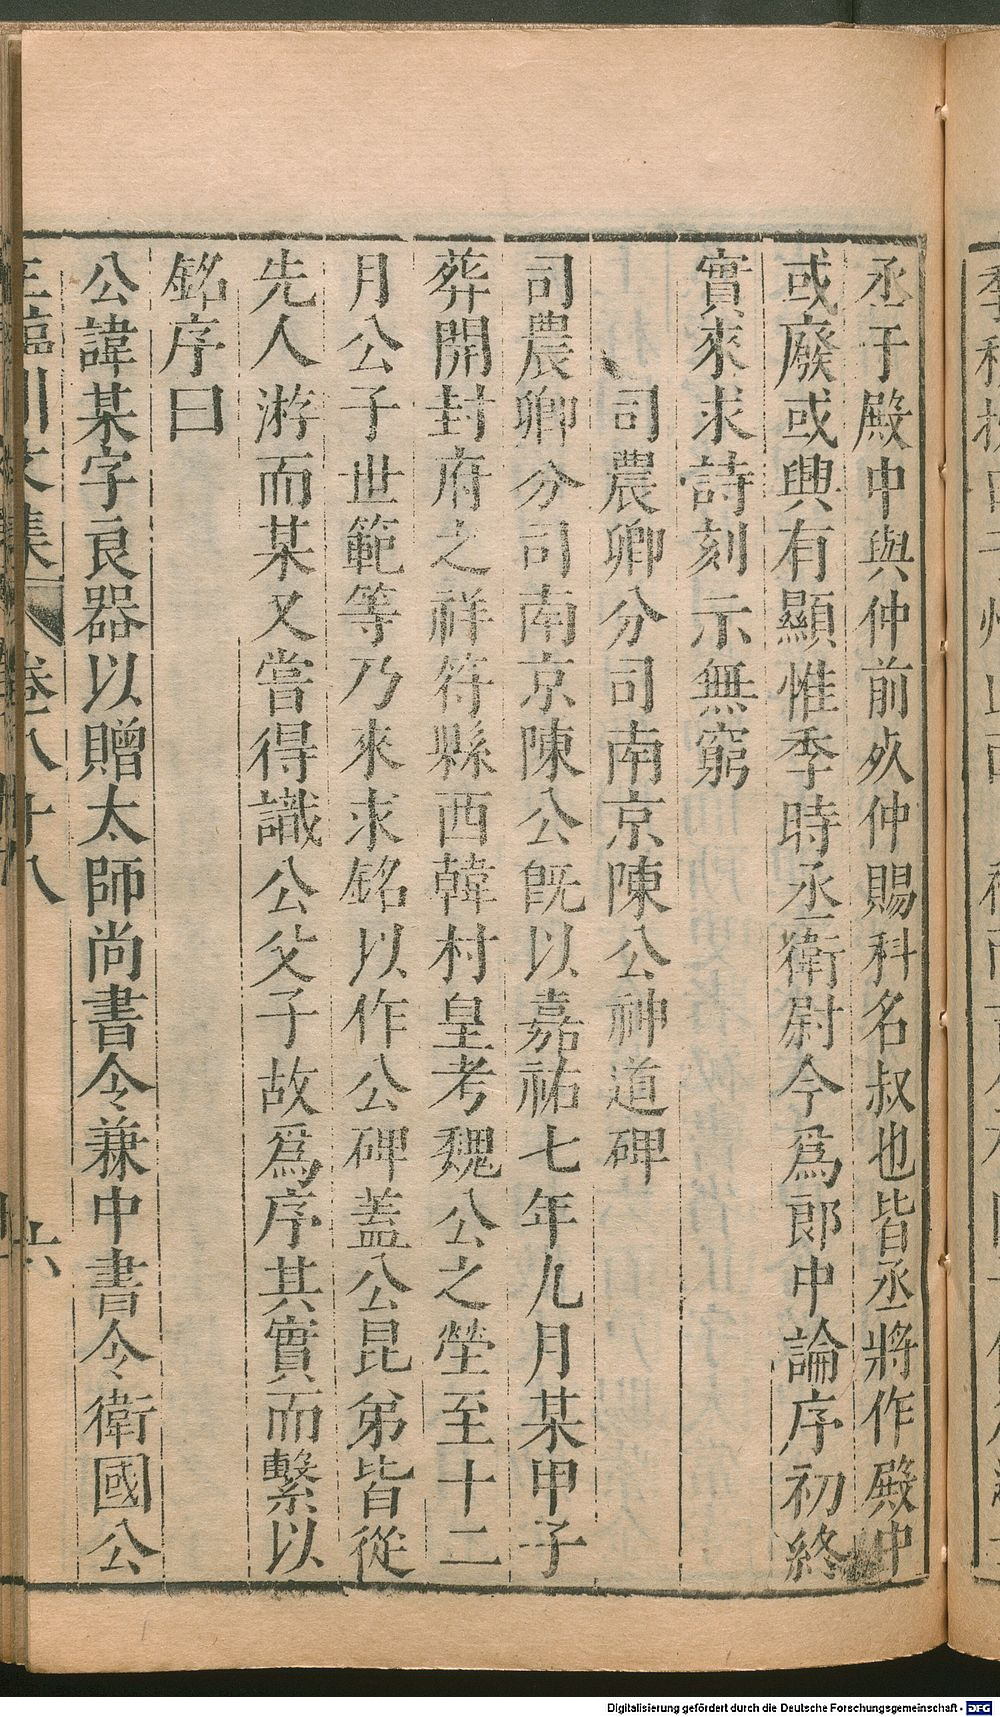 丞于殿中與仲前歿仲賜科名叔也皆丞將作殿中
或廢或興有顯惟季時丞衛尉今爲郎中論序初終
實來求詩刻示無窮
司農卿分司南京陳公神道碑
司農卿分司南京陳公旣以嘉祐七年九月某甲子
葬開封府之祥符縣西韓村皇考魏公之塋至十二
月公子世範等乃來求銘以作公碑蓋公昆弟皆從
先人游而某又嘗得識公父子故爲序其實而繫以
銘序曰
公諱某字良器以贈太師尚書令兼中書令衛國公
王臨川文集 卷八十八 六
Digitalisierung gefördert durch die Deutsche Forschungsgemeinschaft - DFG